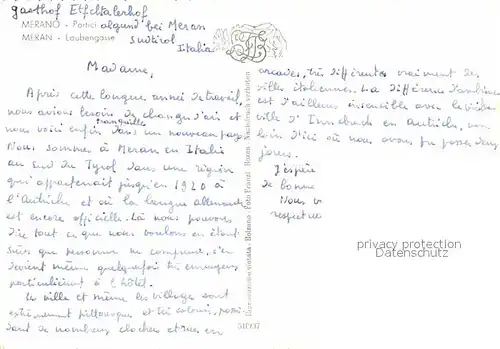 Gasthof Etschtalerhof
Algund bei Meran
Südtirol
Italia
MERANO - Portici
MERAN - Laubengasse
Madame,
Après cette longue année de travail,
nous avions besoin de change d'air et
tranquilles
nous voici enfin dans un nouveau pays.
Nous sommes à Meran en Italie
au sud du Tyrol dans une région
qui appartenait jusqu'en 1920 à
l'Autriche et où la langue allemande
est encore officielle. Là nous pouvons
dire tout ce que nous voulons en étant
sûrs que personne ne comprend, c'en
devient même quelquefois très ennuyeux,
particulièrement à l'hôtel.
La ville et même les villages sont
extrêmement pittoresques et très colorés, possé-
dant de nombreux clochers et rues en
arcades, très différentes vraiment des
villes italiennes. La différence d'ambiance
est d'ailleurs insensible avec la vieille
ville d'Innsbruck en Autriche, non
loin d'ici où nous avons pu passer deux
jours.
J'espère
de bonne
Nous v
respectue
Riproduzione vietata - Bolzano - Foto Franzl - Bozen - Nachdruck verboten
privacy protection
Datenschutz